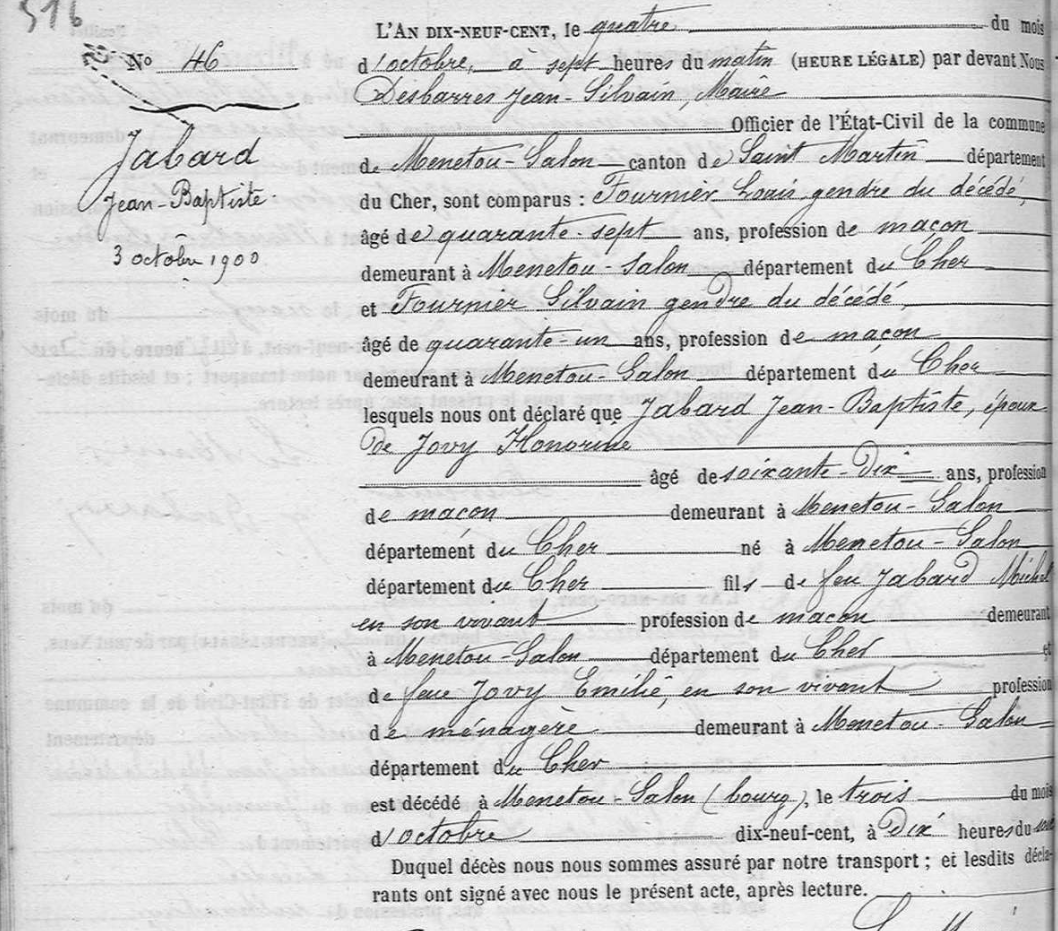 516
N° 46
Jabard
Jean-Baptiste
3 octobre 1900
L'AN DIX-NEUF-CENT, le quatre du mois
d'octobre, a sept heures du matin (HEURE LÉGALE) par devant Nous
Desbarres Jean-Silvain, Maire
Officier de l'État-Civil de la commune
de Menetou-Salon canton de Saint Martin département
du Cher, sont comparus : Fournier Louis, gendre du décédé,
âgé de quarante-sept ans, profession de maçon
demeurant à Menetou-Salon département du Cher
et Fournier Silvain gendre du décédé
âgé de quarante-un ans, profession de maçon
demeurant à Menetou-Salon département du Cher
lesquels nous ont déclaré que Jabard Jean-Baptiste, époux
de Jovy Honorine
âgé de soixante-dix ans, profession
de maçon demeurant à Menetou-Salon
département du Cher né à Menetou-Salon
département du Cher fils de feu Jabard Michel
en son vivant profession de maçon demeurant
à Menetou-Salon département du Cher et
de feue Jovy Emilie, en son vivant profession
de ménagère demeurant à Menetou-Salon
département du Cher
est décédé à Menetou-Salon (bourg), le trois du mois
d'octobre dix-neuf-cent, à dix heures du soir
Duquel décès nous nous sommes assuré par notre transport ; et lesdits décla-
rants ont signé avec nous le présent acte, après lecture.